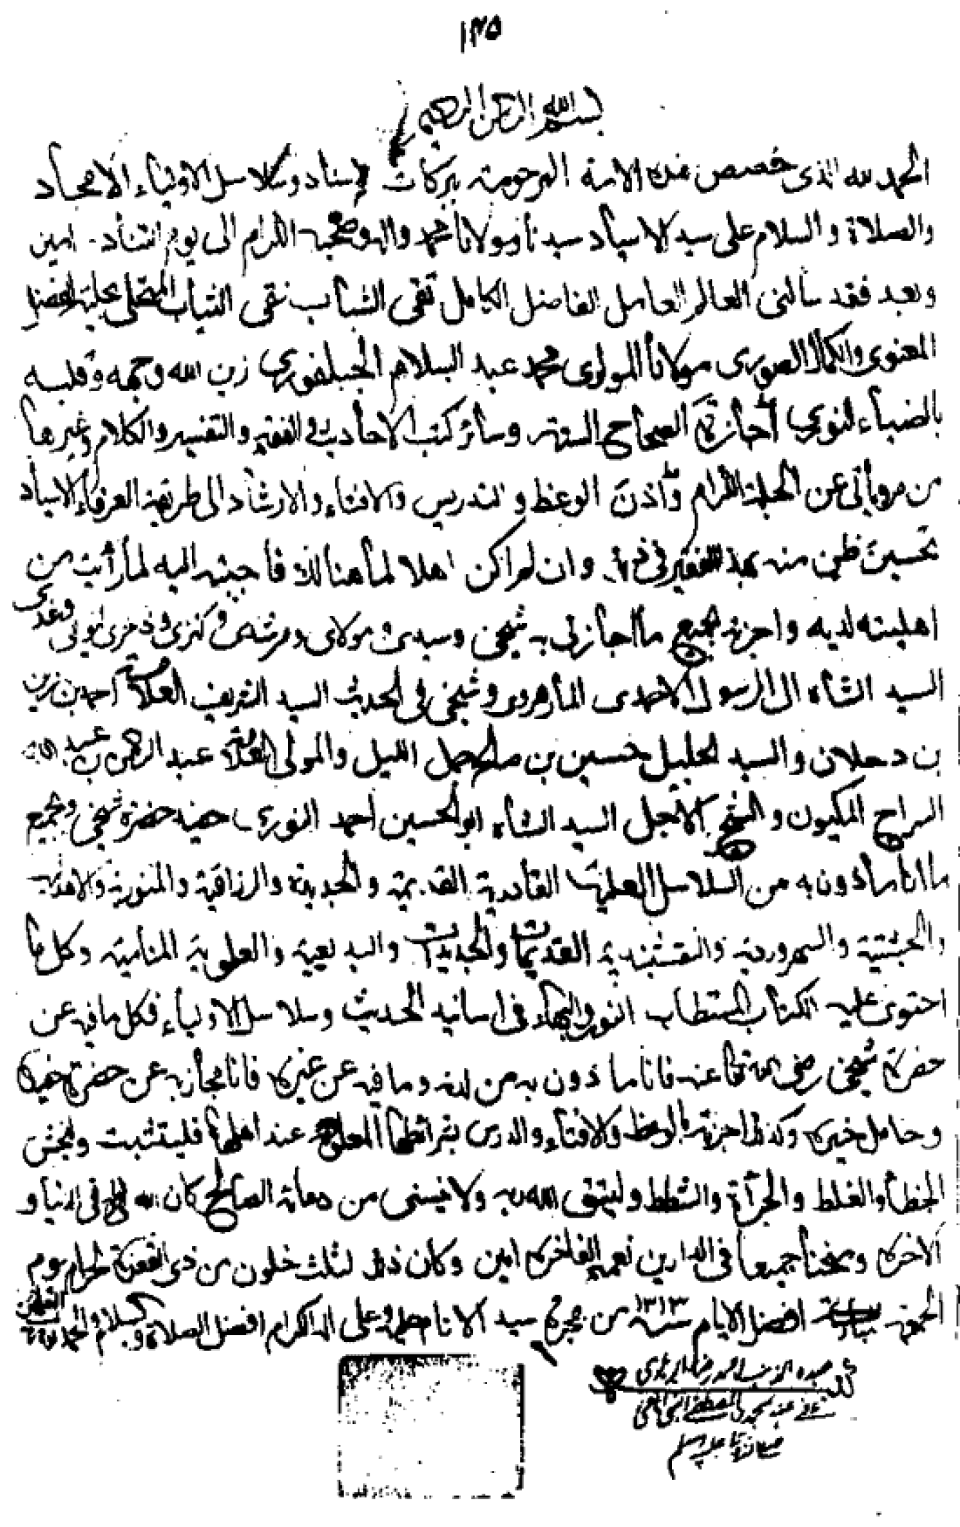 ١٢٥
بسم الله الرحمن الرحيم
الحمد لله الذى خصص هذه الامة المرحومة ببركات الاسناد وسلاسل الاولياء الامجاد
والصلاة والسلام على سيد الاسياد سيدنا ومولانا محمد واله وصحبه الكرام الى يوم التناد امين
وبعد فقد سألنى العالم العامل الفاضل الكامل تقى الشباب نقى الثياب المتحلى بحلية الفضل
المعنوى والكمال الصورى مولانا المولوى محمد عبد السلام الجبلفورى زين الله وجهه وقلبه
بالضياء النورى اجازة الصحاح الستة وسائر كتب الاحاديث والفقه والتفسير والكلام وغيرها
من مروياتى عن الجلة الكرام واذن الوعظ والتدريس والافتاء والارشاد الى طريقة العرفاء الاسياد
تحسين ظن منه بهذا الفقير وان لم اكن اهلا لما هنالك فاجبته اليه لما رأيت من
اهليته لديه واجزته بجميع ما اجازنى به شيخى وسيدى ومولاى ومرشدى وكنزى وذخرى ليومى وغدى
السيد الشاه ال الرسول الاحمدى المارهروى وشيخى فى الحديث السيد الشريف العلامة احمد بن زين
بن دحلان والسيد الجليل حسين بن صالح جمل الليل والمولى العلامة عبد الرحمن بن عبد الله
السراج المكيون والشيخ الاجل السيد الشاه ابو الحسين احمد النورى حفيد حضرة شيخى وبجميع
ما انا مأذون به من السلاسل العلية القادرية القديمة والجديدة والرزاقية والمنورية والاهدلية
والچشتية والسهروردية والنقشبندية القديمات والجديدات والبديعية والعلوية المنامية وكل ما
احتوى عليه الكتاب المستطاب النور والبهاء فى اسانيد الحديث وسلاسل الاولياء فكل ما فيه عن
حضرة شيخى رضى الله تعالى عنه فانا ماذون به من لدنه وما فيه عن غيره فانا مجاز به عن حضرة حفيده
وحامل خيره وكذلك اجزته بالوعظ والافتاء والدرس بشرائطها المعلومة عند اهلها فليتثبت وليخش
الخطأ والغلط والجرأة والشطط وليتق الله ربه ولا ينسنى من دعائه الصالح كان الله لى وله فى الدنيا و
الاخرة ومنحنا جميعا فى الدارين نعمه الفاخرة امين وكان ذلك لثلث خلون من ذى القعدة الحرام يوم
الجمعة افضل الايام سنة ١٣١٣ من هجرة سيد الانام عليه وعلى اله الكرام افضل الصلاة والسلام والحمد لله
عبده المذنب احمد رضا البريلوى
عفى عنه بمحمدن المصطفى النبى الامى
صلى الله تعالى عليه وسلم